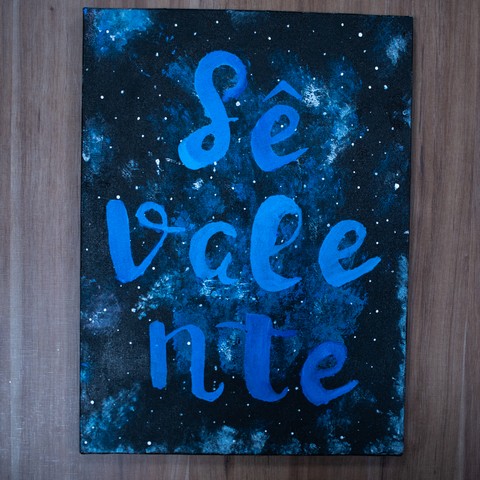 Sê
vale
nte